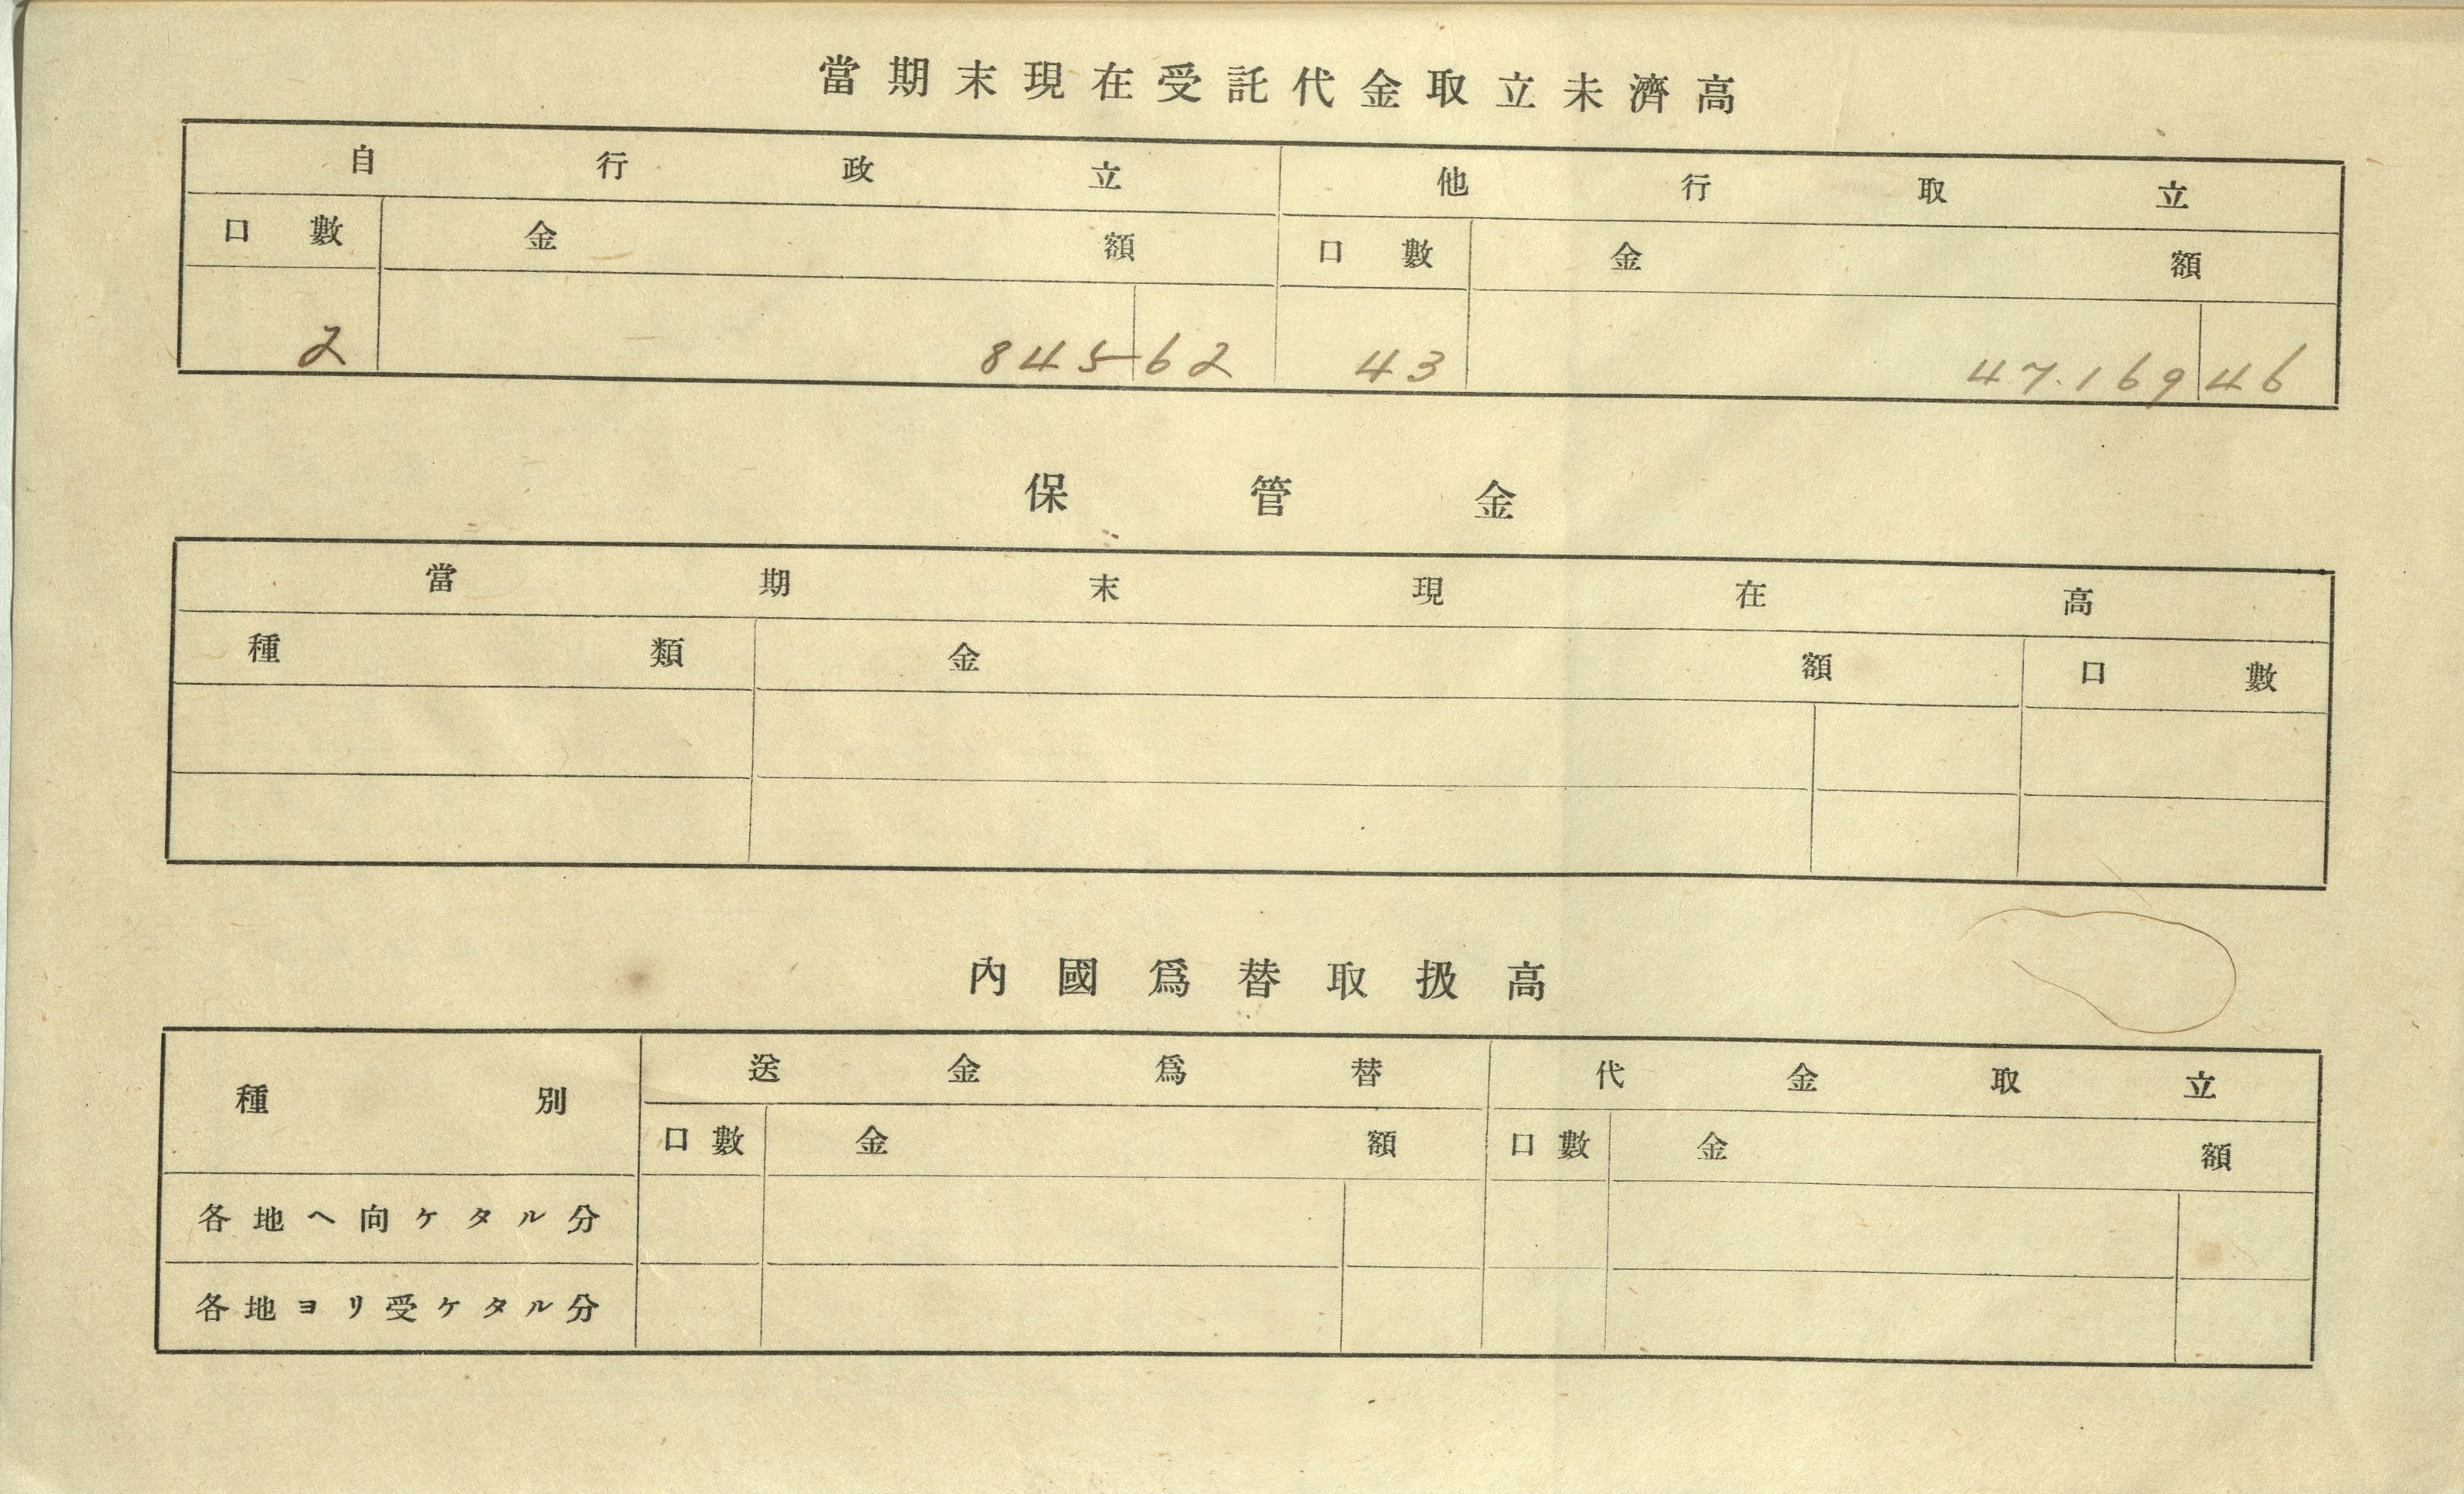 當期末現在受託代金取立未濟高
自行政立 他行取立
口數 金額 口數 金額
2 845 62 43 47.169 46
保管金
當期末現在高
種類 金額 口數
內國爲替取扱高
種別 送金爲替 代金取立
口數 金額 口數 金額
各地ヘ向ケタル分
各地ヨリ受ケタル分